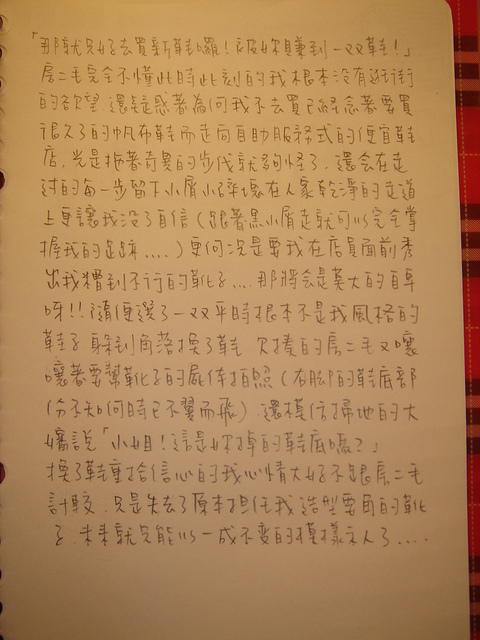 「那就只好去買新鞋囉！反被妳賺到一双鞋！」
房二毛完全不懂此時此刻的我根本沒有逛街
的慾望 還疑惑著為何我不去買已經念著要買
很久了的帆布鞋而走向自助服務式的便宜鞋
店. 光是拖著奇異的步伐就夠怪了. 還會在走
過的每一步留下小屑小碎塊在人家乾淨的走道
上更讓我沒了自信（跟著黑小屑走就可以完全掌
握我的足跡....）更何況是要我在店員面前秀
出我糟到不行的靴子.... 那將會是莫大的自卑
呀!! 隨便選了一双平時根本不是我風格的
鞋子 躲到角落換了鞋 欠揍的房二毛又嚷
嚷著要幫靴子的屍体拍照（右腳的鞋底部
份不知何時已不翼而飛）還模仿掃地的大
嬸說「小姐！這是妳掉的鞋底嗎？」
換了鞋重拾信心的我心情大好不跟房二毛
計較. 只是失去了原本担任我造型要角的靴
子. 未來就只能以一成不變的模樣示人了.....